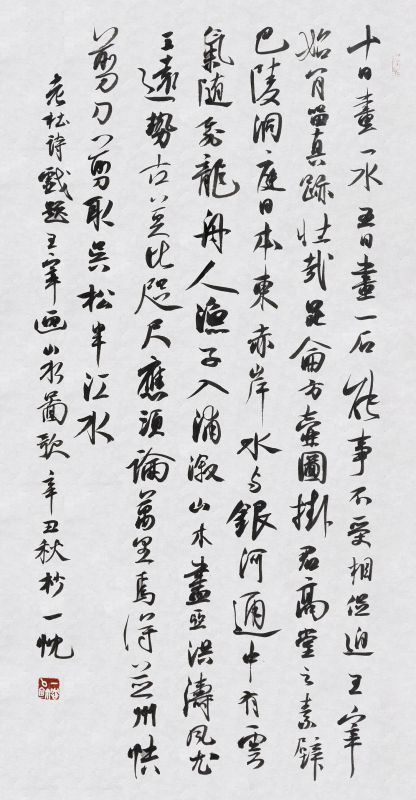 十日畫一水五日畫一石能事不受相促迫王宰
始肯留真跡壯哉昆侖方壺圖掛君高堂之素壁
巴陵洞庭日本東赤岸水与銀河通中有雲
氣隨飛龍舟人漁子入浦漵山木盡亞洪濤風尤
工遠勢古莫比咫尺應須論萬里焉得并州快
剪刀剪取吳松半江水
老杜詩戲題王宰画山水圖歌辛丑秋杪一忱